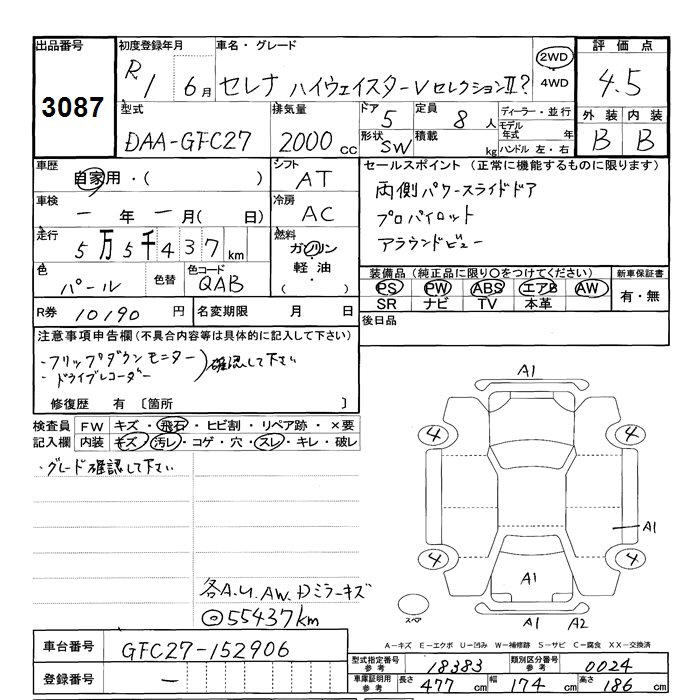 出品番号 初度登録年月 車名・グレード 評価点
3087 R1 6月 セレナ ハイウェイスターVセレクションⅡ? 2WD 4WD 4.5
型式 排気量 ドア 定員 ディーラー・並行 外装 内装
DAA-GFC27 2000cc 5 8人 モデル年式 年 B B
形状 SW 積載 kg ハンドル 左・右
車歴 自家用・( ) シフト AT セールスポイント (正常に機能するものに限ります)
車検 ー年ー月( 日) 冷房 AC 両側パワースライドドア
プロパイロット
走行 5万5千437km 燃料 ガソリン アラウンドビュー
軽油・( )
色 パール 色替 色コード QAB 装備品 (純正品に限り○をつけてください) 新車保証書
PS PW ABS エアB AW 有・無
SR ナビ TV 本革
R券 10190円 名変期限 月 日 後日品
注意事項申告欄(不具合内容等は具体的に記入して下さい)
・フリップダウンモニター
・ドライブレコーダー ) 確認して下さい
修復歴 有 〔箇所 〕
検査員 FW キズ・飛石・ヒビ割・リペア跡・×要
記入欄 内装 キズ・汚レ・コゲ・穴・スレ・キレ・破レ
・グレード確認して下さい
A1
4 4
A1
4 4
A1
A1 A2
スペア
各A.U.AW.Dミラーキズ
◎55437km
A−キズ E−エクボ U−凹み W−補修跡 S−サビ C−腐食 XX−交換済
車台番号 GFC27-152906
型式指定番号参考 18383 類別区分番号参考 0024
登録番号 ー
車庫証明用参考 長さ 477cm 幅 174cm 高さ 186cm